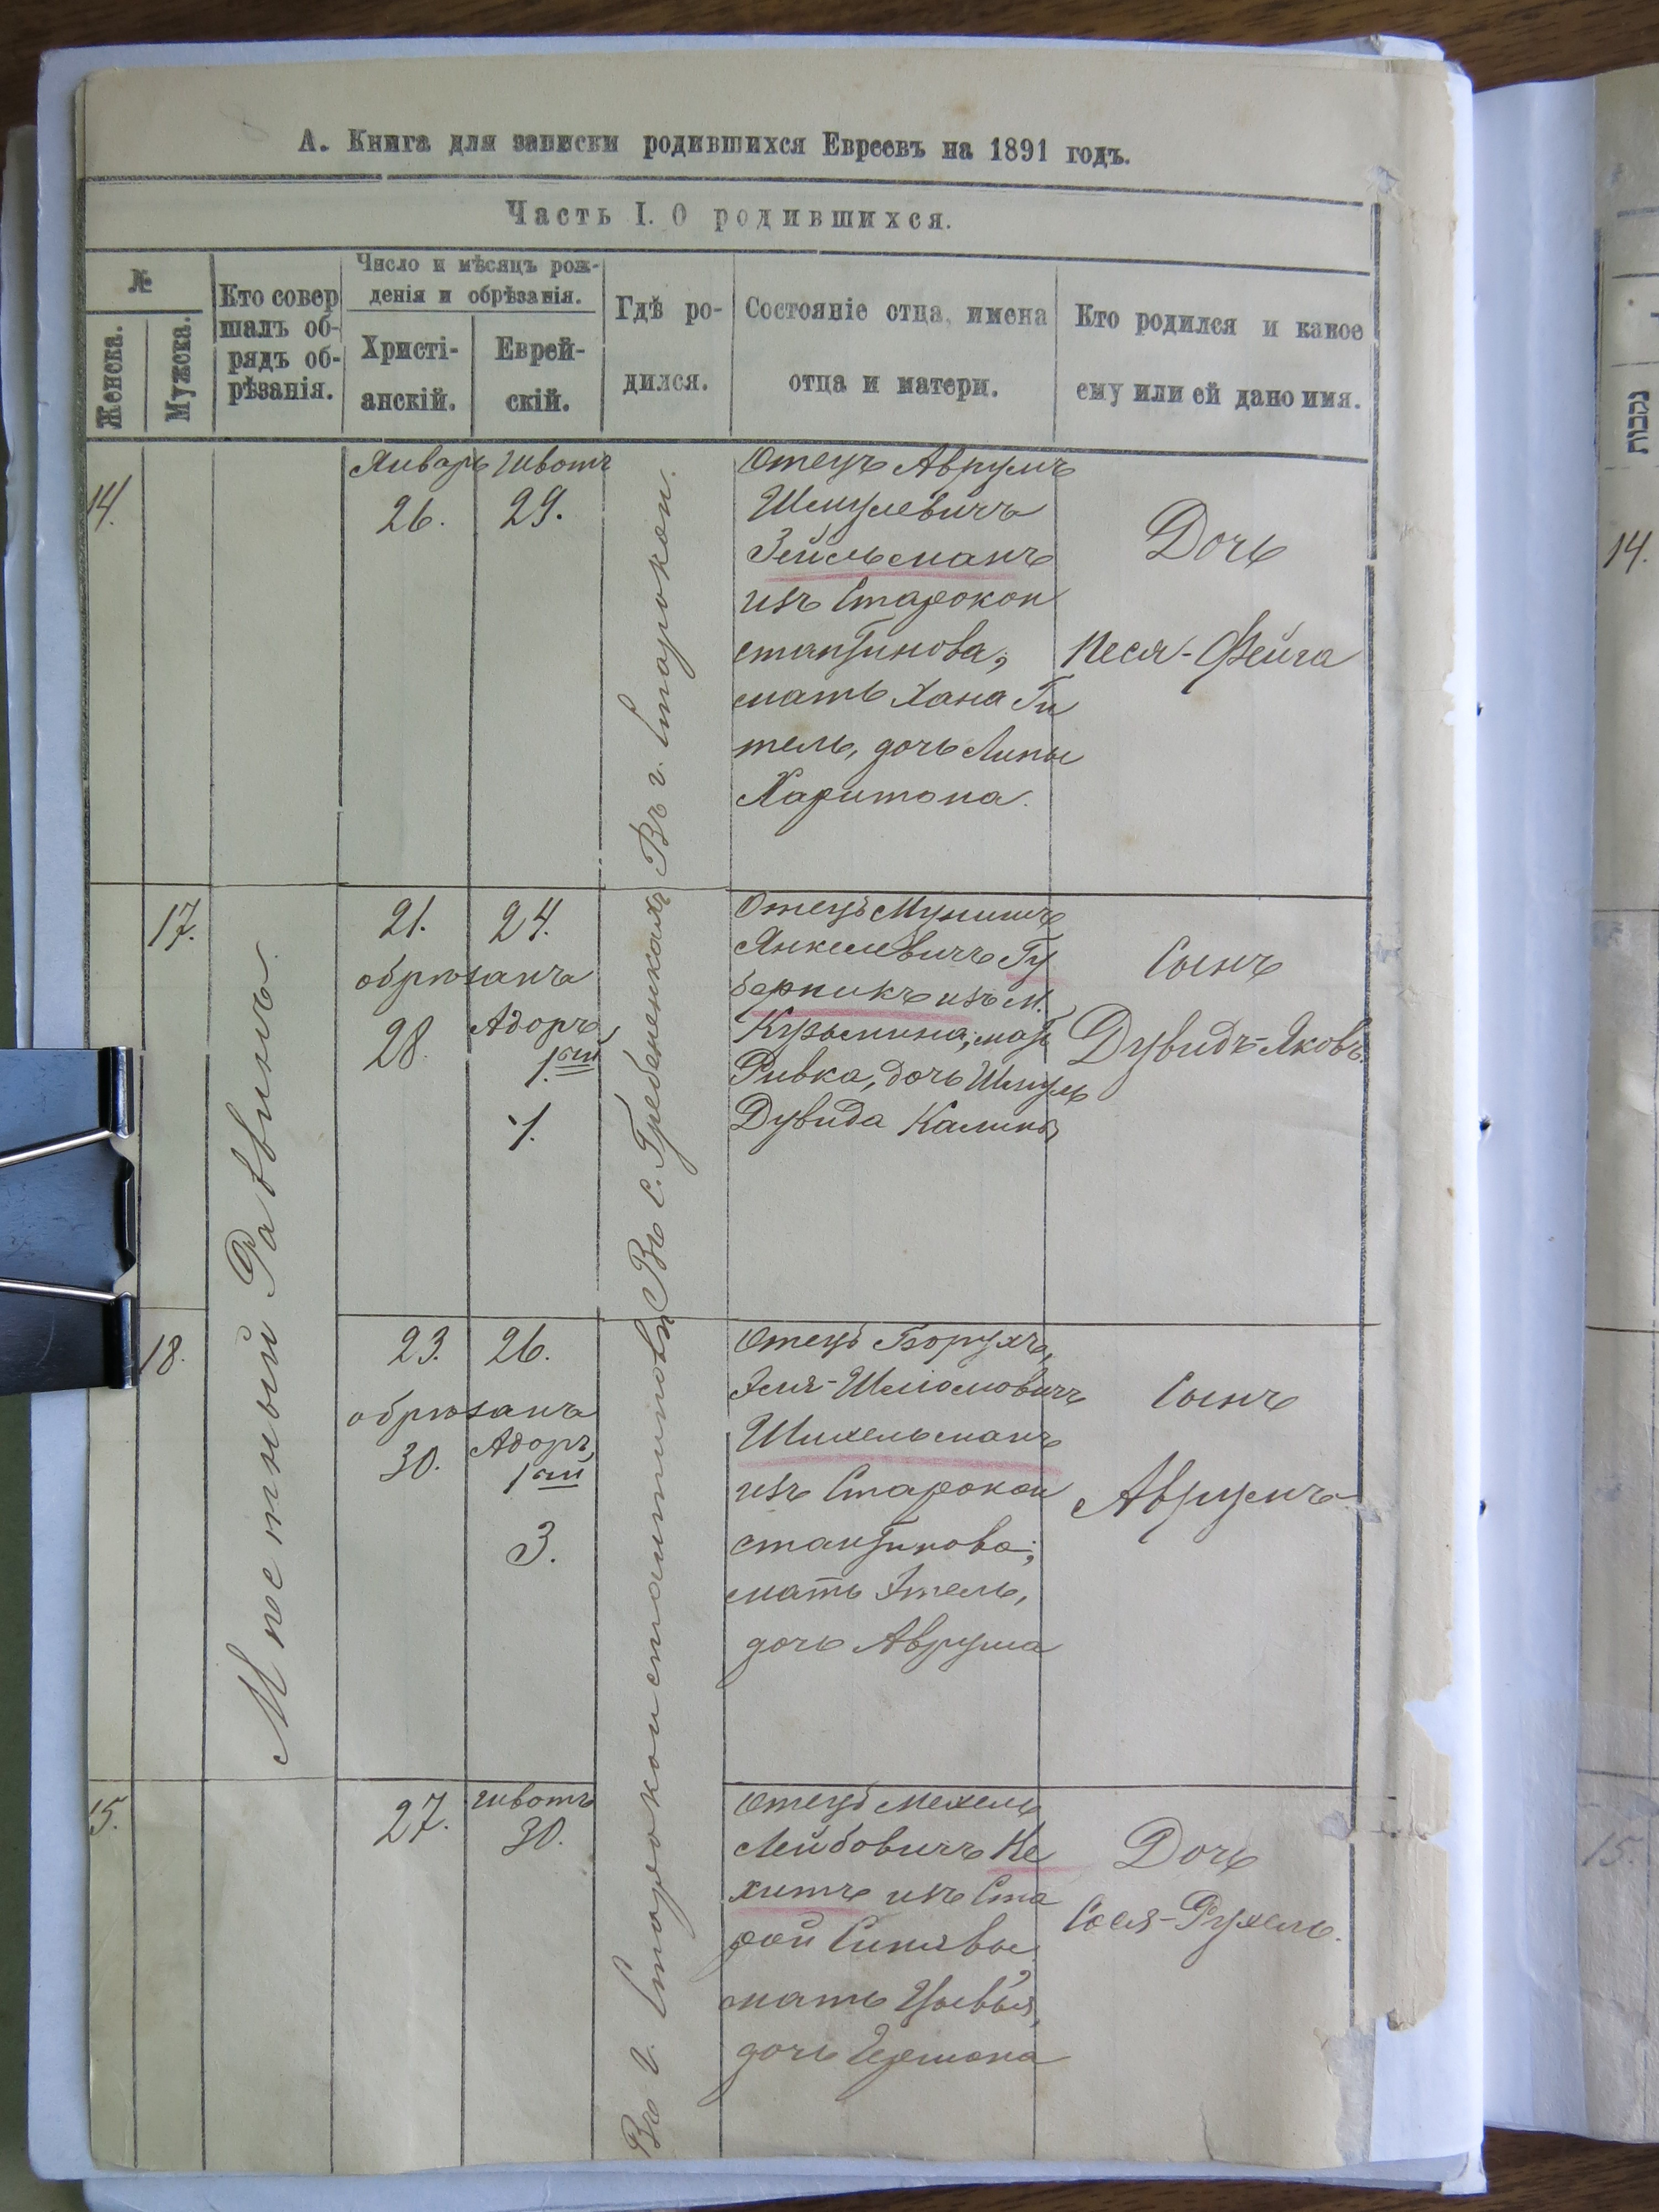 А. Книга для записки родившихся Евреевъ на 1891 годъ.
Часть I. О родившихся.
№
Женска.
Мужска.
Кто совер
шалъ об-
рядъ об-
рѣзанія.
Число и мѣсяцъ рож-
денія и обрѣзанія.
Христі-
анскій.
Еврей-
скій.
Гдѣ ро-
дился.
Состояніе отца, имена
отца и матери.
Кто родился и какое
ему или ей дано имя.
14.
Январь
26.
Шватъ
29.
Въ г. Старокон.
Отецъ Аврумъ
Шмулевичъ
Зейльманъ
изъ Старокон
стантинова,
мать Хана Ги
тель, дочь Липы
Харитона.
Дочь
Песя-Фейга
Мѣстный Раввинъ
17.
21.
24.
обрѣзанъ
28.
Адоръ,
1.ый
1.
Въ с. Гребененкахъ
Отецъ Мунишъ
Янкелевичъ Гу
берникъ изъ м.
Кузьмина, мать
Ривка, дочь Шмуль
Дувида
Сынъ
Дувидъ-Яковъ.
18.
23.
26.
обрѣзанъ
30.
Адоръ,
1ый
3.
Въ г. Староконстантиновѣ
Отецъ Борухъ,
Эля-Шлiомовичъ
Шихельманъ
изъ Старокон
стантинова;
мать Этель,
дочь Аврума
Сынъ
Аврумъ
15.
27.
Шватъ
30.
Отецъ Мехель
Лейбовичъ Не
хитъ изъ Ста
рой Синявы
мать Цывья,
дочь Гершона
Дочь
Сося-Рухель.
נקבות
14.
15.